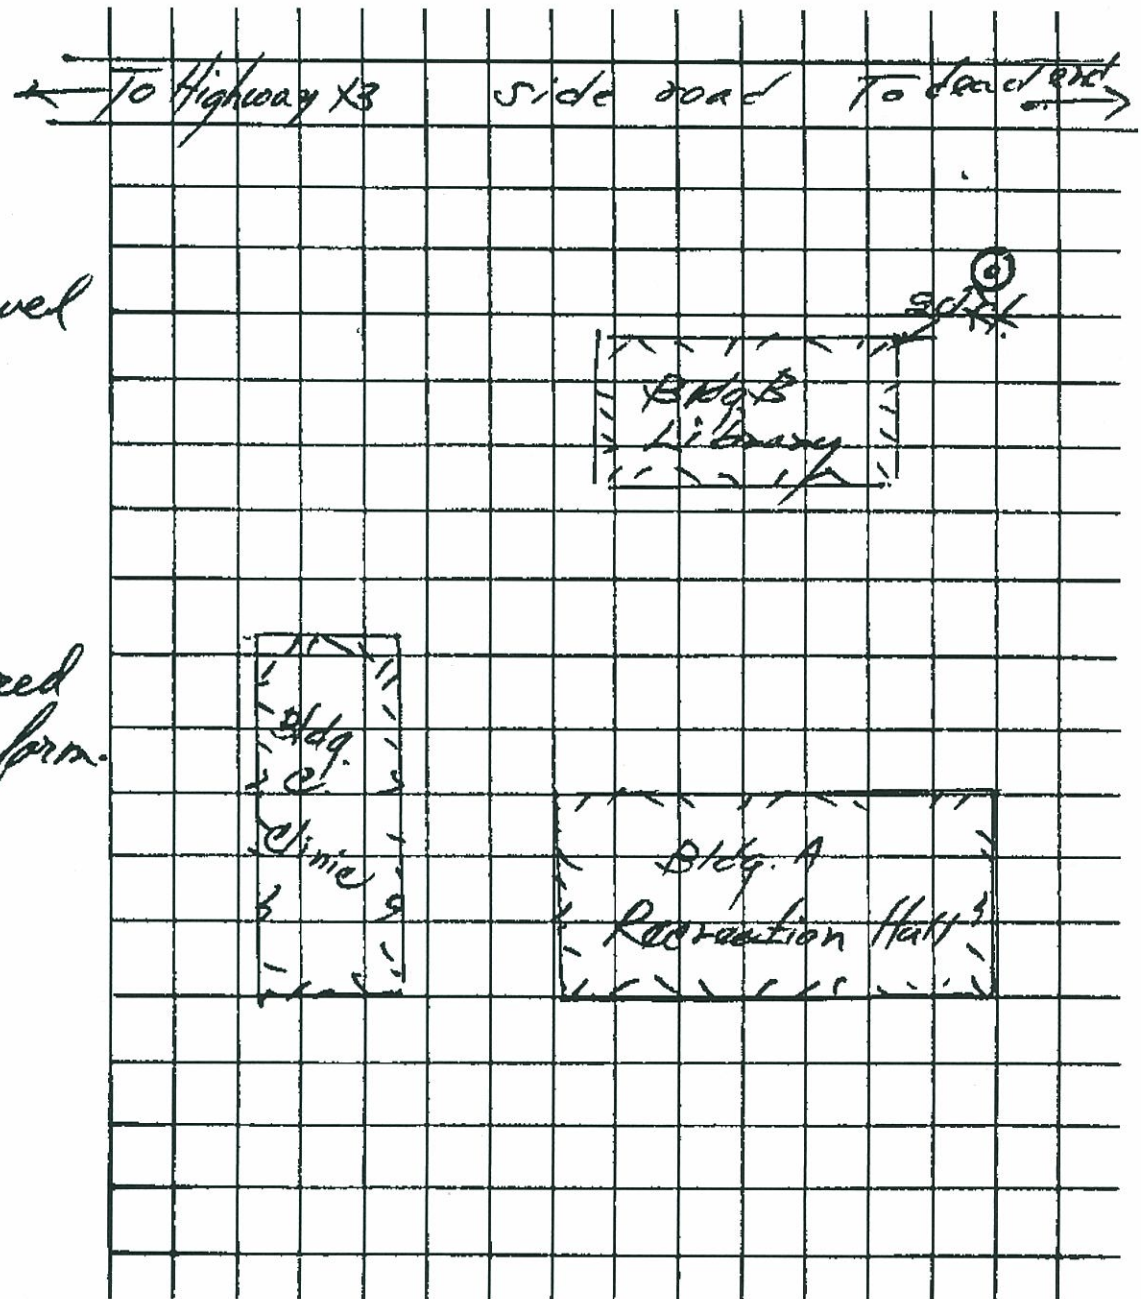 To Highway X3 side road To dead end
vel
Bldg B
Library
ced
form.
Bldg.
C
Clinic
Bldg. A
Recreation Hall